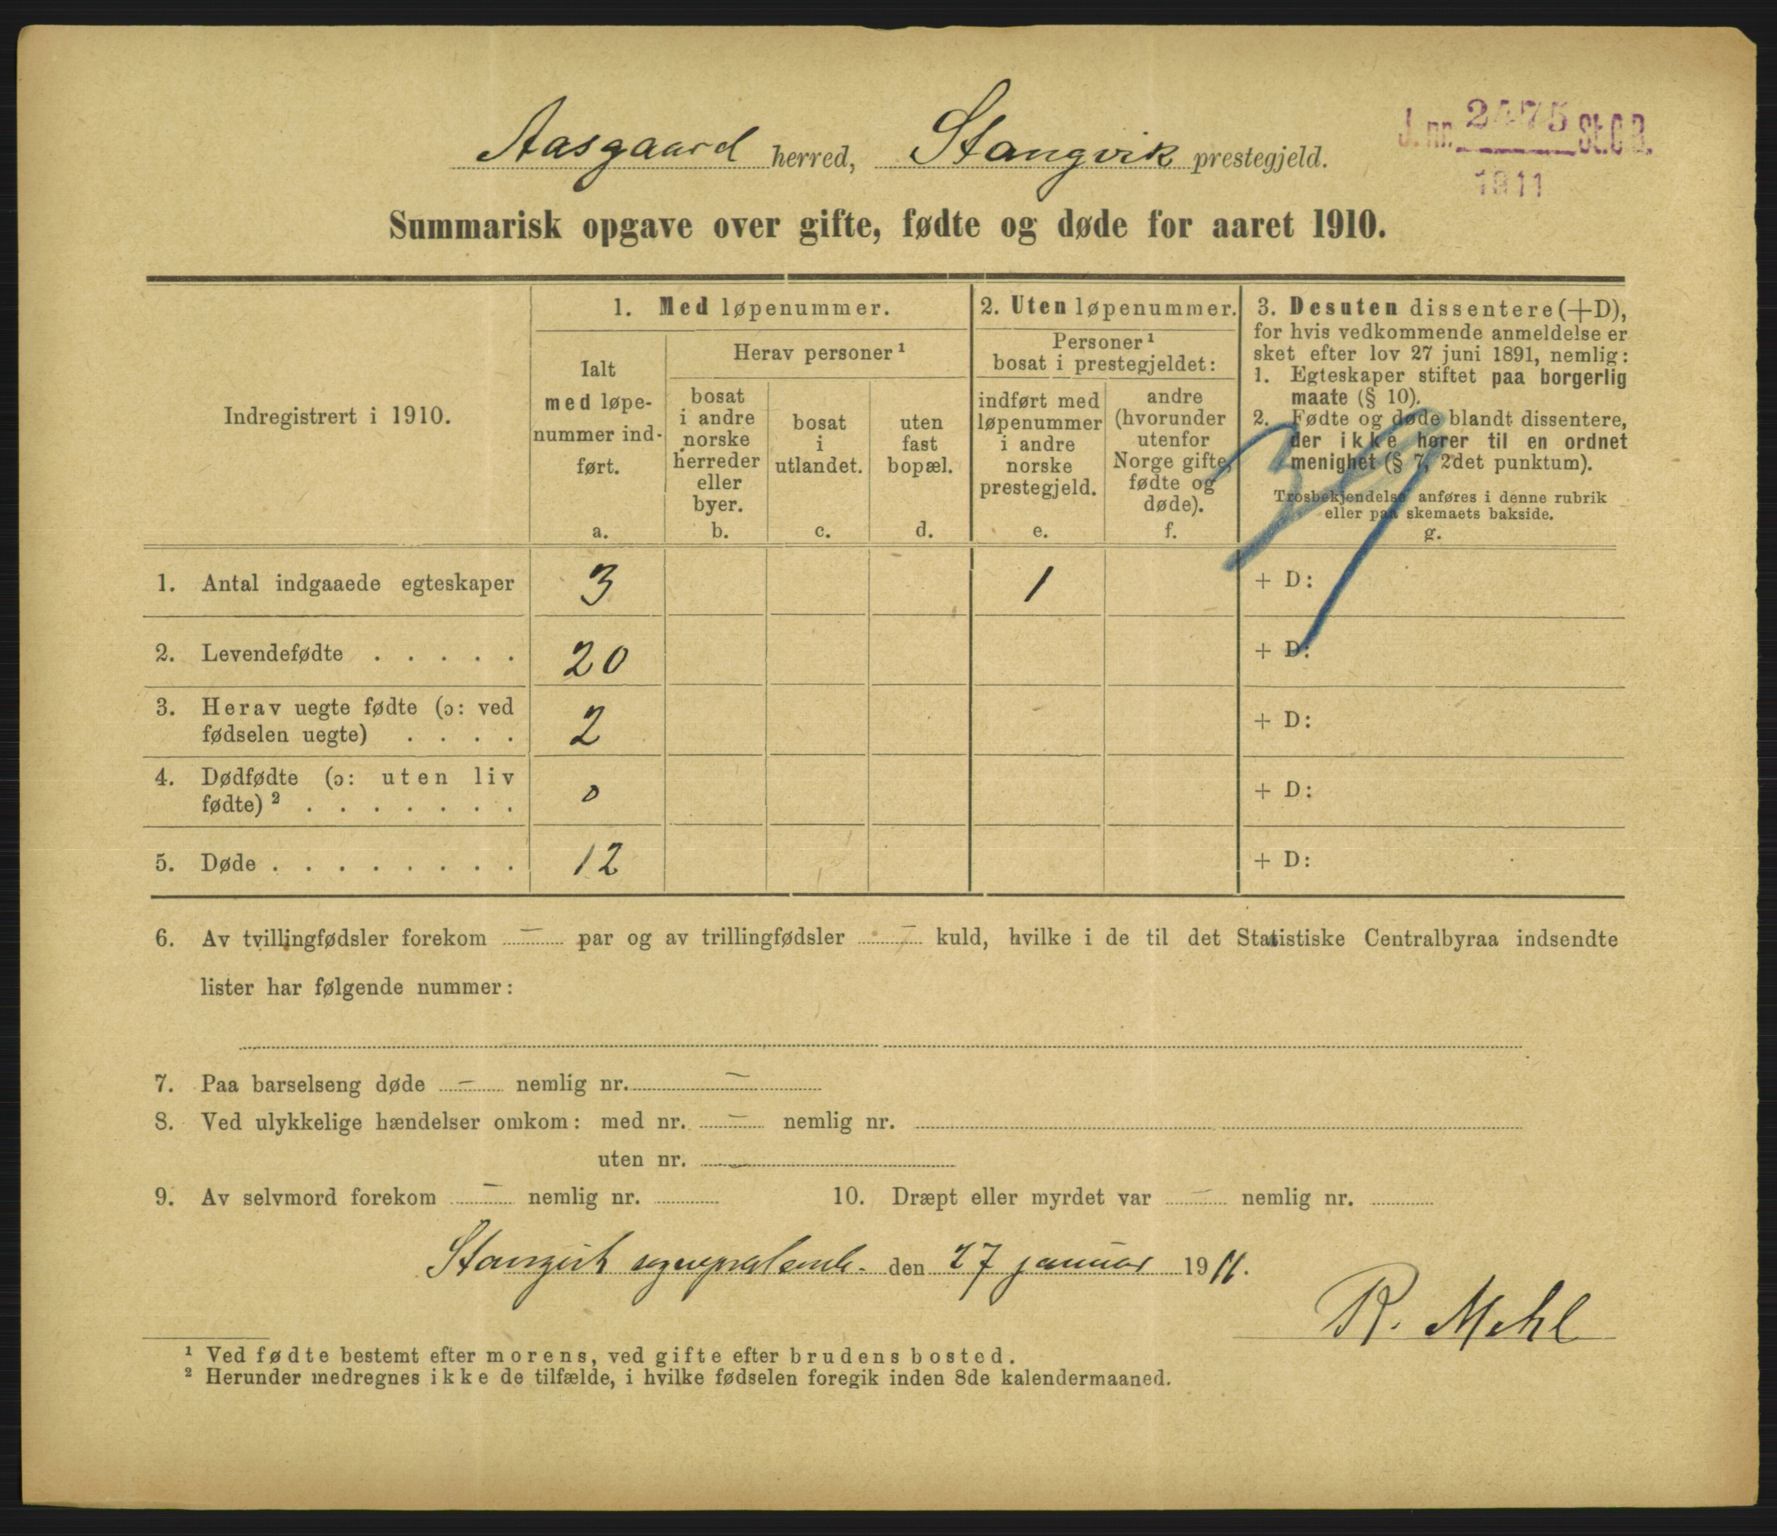 Aasgaard herred, Stangvik prestegjeld.
J. nr. 2475 St. C B.
1911
Summarisk opgave over gifte, fødte og døde for aaret 1910.
Indregistrert i 1910.
1. Med løpenummer.
Ialt
med løpe-
nummer ind-
ført.
a.
Herav personer ¹
bosat
i andre
norske
herreder
eller
byer.
b.
bosat
i
utlandet.
c.
uten
fast
bopæl.
d.
2. Uten løpenummer.
Personer ¹
bosat i prestegjeldet:
indført med
løpenummer
i andre
norske
prestegjeld.
e.
andre
(hvorunder
utenfor
Norge gifte,
fødte og
døde).
f.
3. Desuten dissentere (+D),
for hvis vedkommende anmeldelse er
sket efter lov 27 juni 1891, nemlig:
1. Egteskaper stiftet paa borgerlig
maate (§ 10).
2. Fødte og døde blandt dissentere,
der ikke hører til en ordnet
menighet (§ 7, 2det punktum).
Trosbekjendelse anføres i denne rubrik
eller paa skemaets bakside.
g.
39
1. Antal indgaaede egteskaper 3 1 + D:
2. Levendefødte . . . . . 20 + D:
3. Herav uegte fødte (ɔ: ved
fødselen uegte) . . . . 2 + D:
4. Dødfødte (ɔ: uten liv
fødte) ² . . . . . . . 0 + D:
5. Døde . . . . . . . . 12 + D:
6. Av tvillingfødsler forekom — par og av trillingfødsler — kuld, hvilke i de til det Statistiske Centralbyraa indsendte
lister har følgende nummer:
7. Paa barselseng døde — nemlig nr. —
8. Ved ulykkelige hændelser omkom: med nr. — nemlig nr.
uten nr.
9. Av selvmord forekom — nemlig nr. 10. Dræpt eller myrdet var — nemlig nr.
Stangvik den 27 januar 1911.
R. Mehl
¹ Ved fødte bestemt efter morens, ved gifte efter brudens bosted.
² Herunder medregnes ikke de tilfælde, i hvilke fødselen foregik inden 8de kalendermaaned.